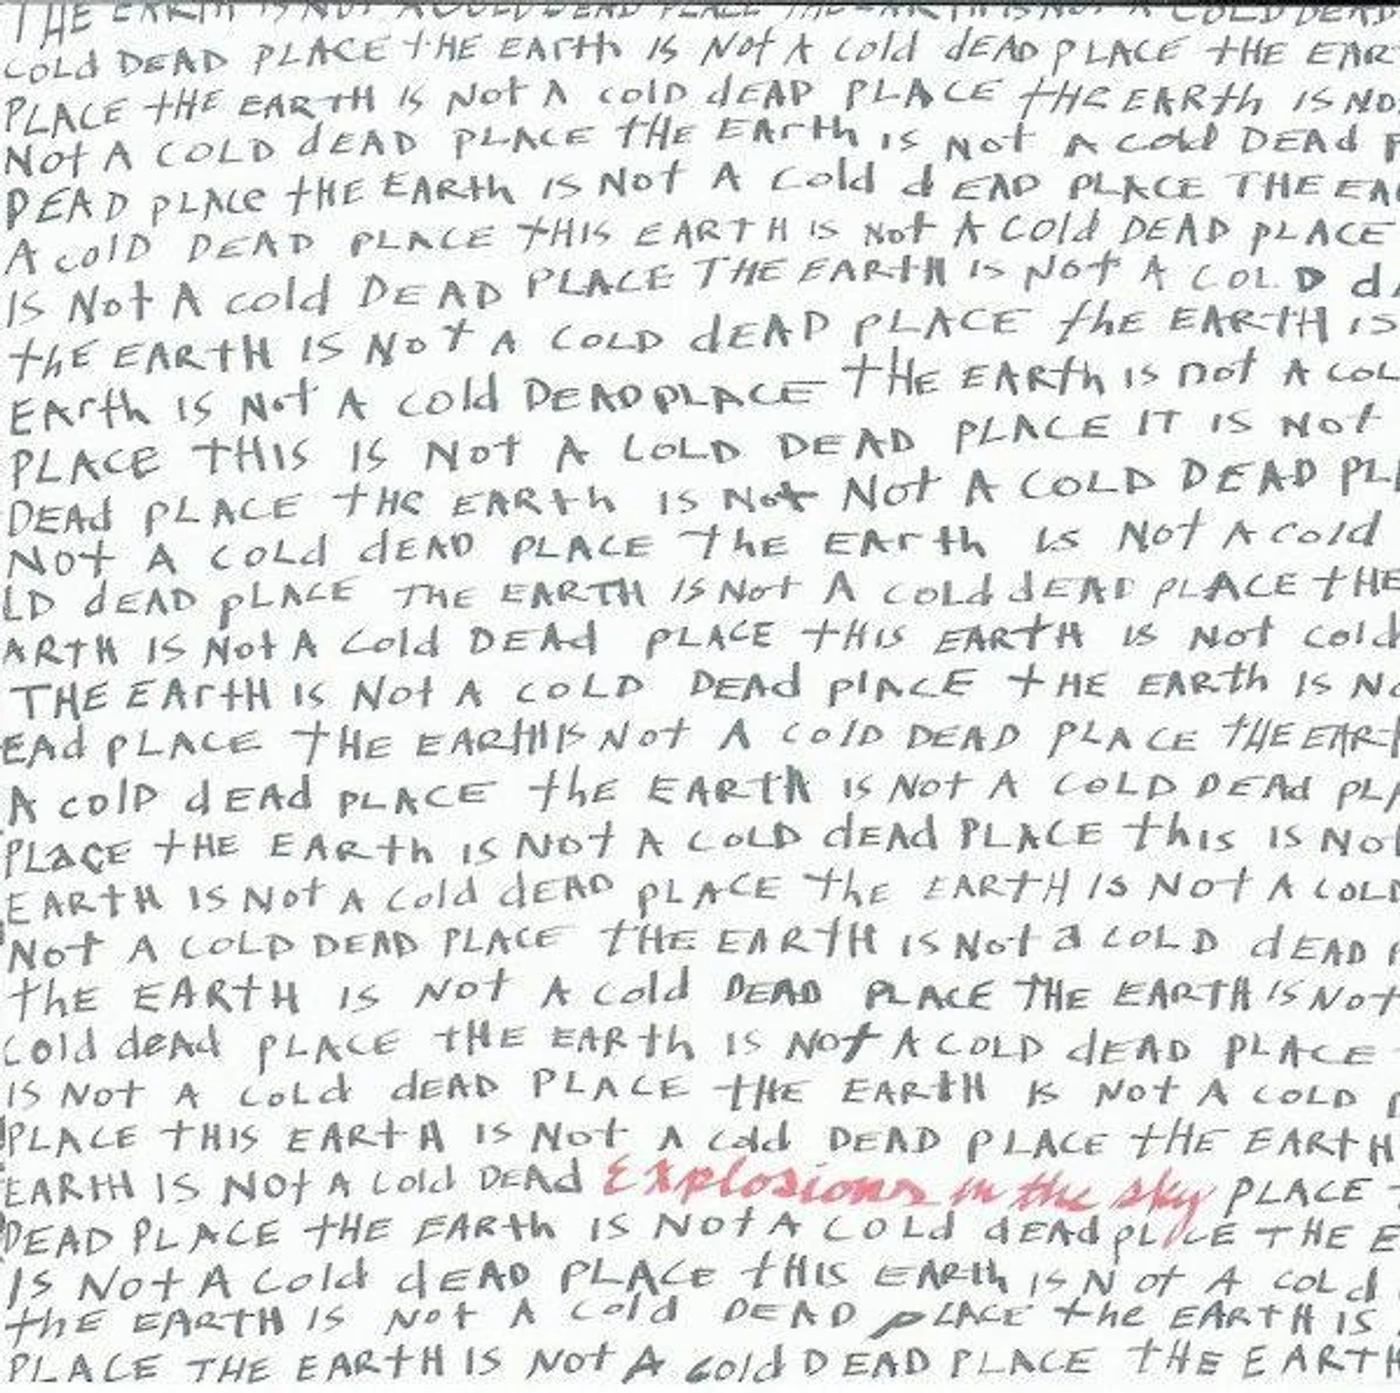 THE EARTH IS NOT A COLD DEAD PLACE THE EARTH IS NOT A COLD DEAD
COLd DEAD PLACE tHE EARth IS Not A cold dEAD PLACE tHE EAR
PLACE tHE EARTH IS Not A colD dEAD PLACE tHE EARth IS NO
Not A COLD dEAD PLACE tHE EArth is Not A cold DEAd P
DEAD pLACe tHE EARth IS Not A Cold dEAD PLACE THE EA
A colD DEAD PLACE tHIS EARTH IS Not A Cold DEAD pLACE
IS Not A cold DEAD PLACE THE EARtH IS Not A COLD d
thE EARtH IS Not A COLD dEAD PLACE thE EARtH IS
EArth IS Not A cold DEAD PLACE tHE EARth IS not A COL
PLACE tHIS IS Not A COLD DEAD PLACE IT IS Not
DEAd pLACE tHE EARth IS Not Not A COLD DEAD PL
Not A COLd dEAD PLACE thE EArth is Not A Cold
LD dEAD pLACE THE EARTH IS Not A COLd dEAD PLACE tHE
ARTH IS Not A Cold DEAd PLACE tHIS EARtH IS Not Cold
THE EArtH IS Not A COLD DEAd plACE tHE EARth IS NO
EAd pLACE tHE EARtH IS Not A ColD DEAD PLACE tHE EART
A colD dEAd pLACE thE EARTh IS Not A COLD DEAd PLA
PLaCE tHE EARth IS Not A COLD dEAd PLACE this IS No
EARtH IS Not A Cold dEAD pLACE the EARtH IS Not A COLD
Not A COLD DEAD PLACE tHE EARtH IS Not a COLD dEAD P
thE EARtH IS Not A Cold DEAD PLACE THE EARTH IS Not
Cold dEAd pLACE tHE EARth IS Not A COLD dEAD PLACE
IS Not A Cold dEAD PLACE tHE EARtH IS Not A COLD P
PLACE tHIS EARtH IS Not A Cold DEAD PLACE tHE EARtH
EARtH IS Not A Cold DEAd Explosions in the sky PLACE
DEAD PLACE tHE EARth IS Not A COLd dEAd pLACE THE E
IS Not A Cold dEAD PLACE tHIS EARth IS Not A COLd
thE EARTH IS Not A Cold DEAD pLACE the EARtH IS
PLACE THE EARtH IS Not A Cold DEAD PLACE tHE EARTH